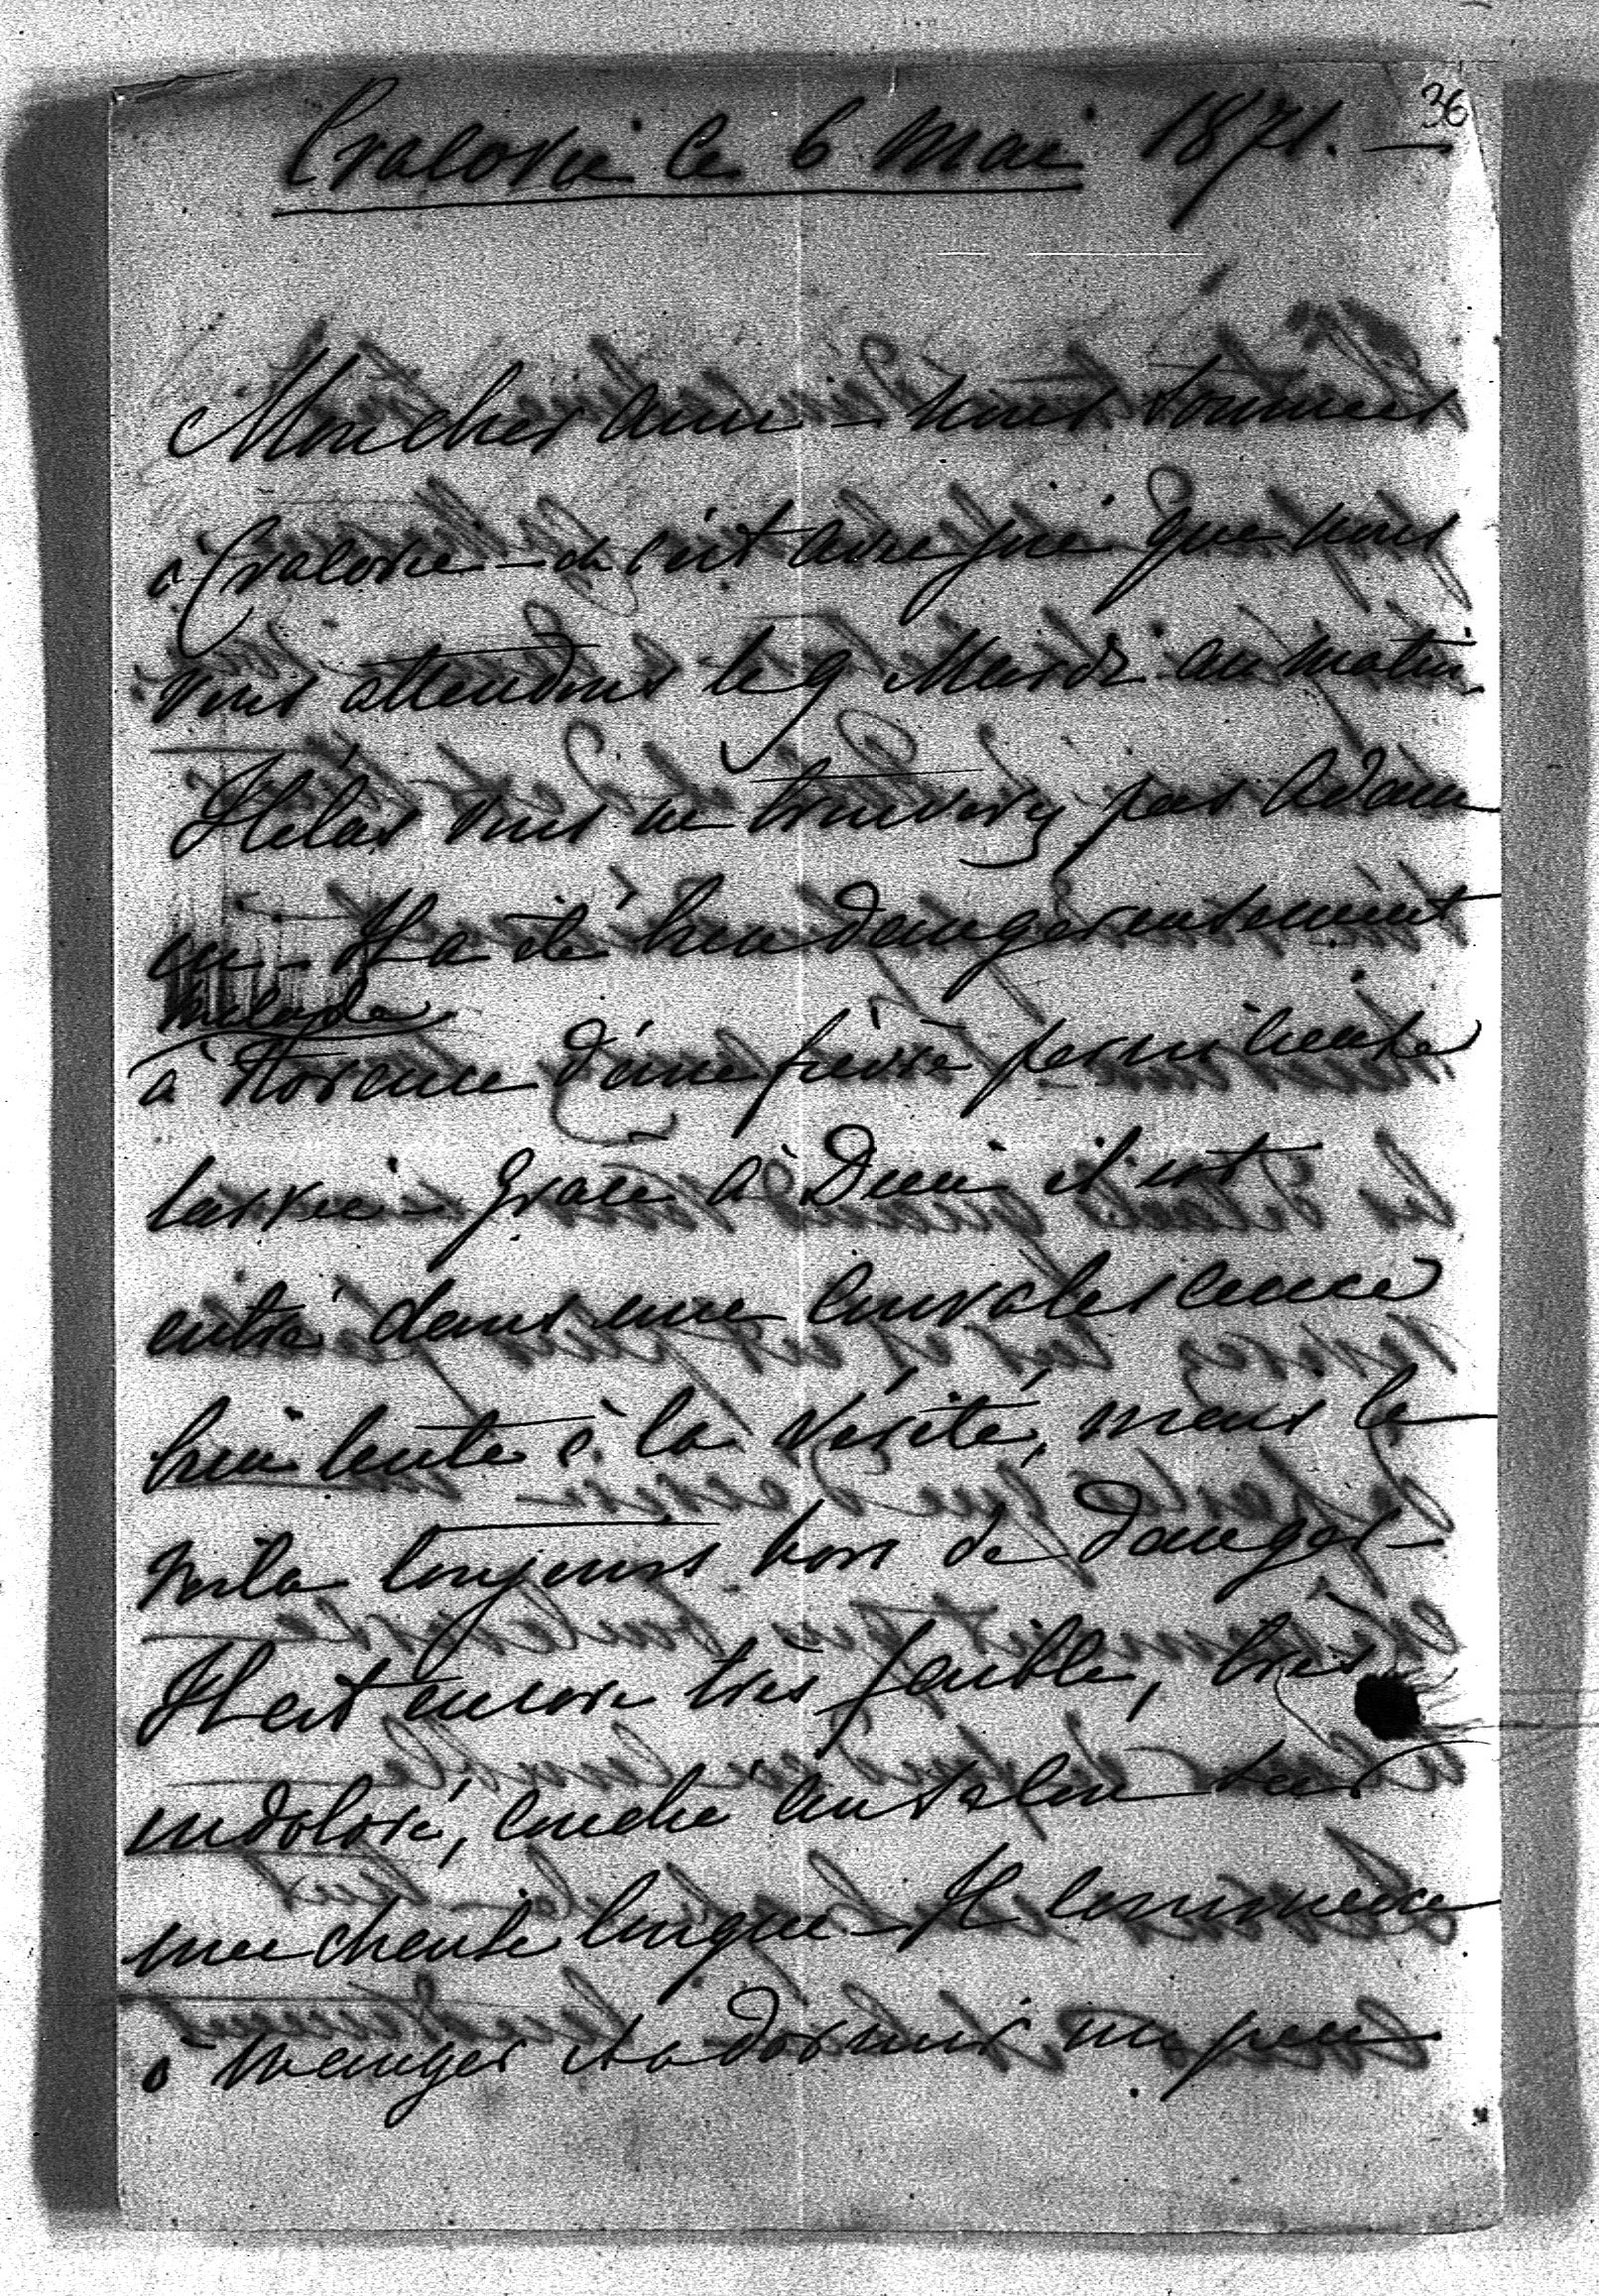 36
Cracovie le 6 Mai 1871. —
Mon cher ami — nous sommes
à Cracovie — et c'est avec joie que nous
vous attendons le 9 Mardi au matin.
Hélas vous ne trouverez pas Adam
ici — Il a été bien dangereusement
malade
à Florence d'une fièvre pernicieuse
larvée — grâce à Dieu il est
entré dans une convalescence
bien lente à la vérité, mais le
voilà toujours hors de danger —
Il est encore très faible, très
endolori, couché au salon sur
une chaise longue — Il commence
à manger et a dormir un peu